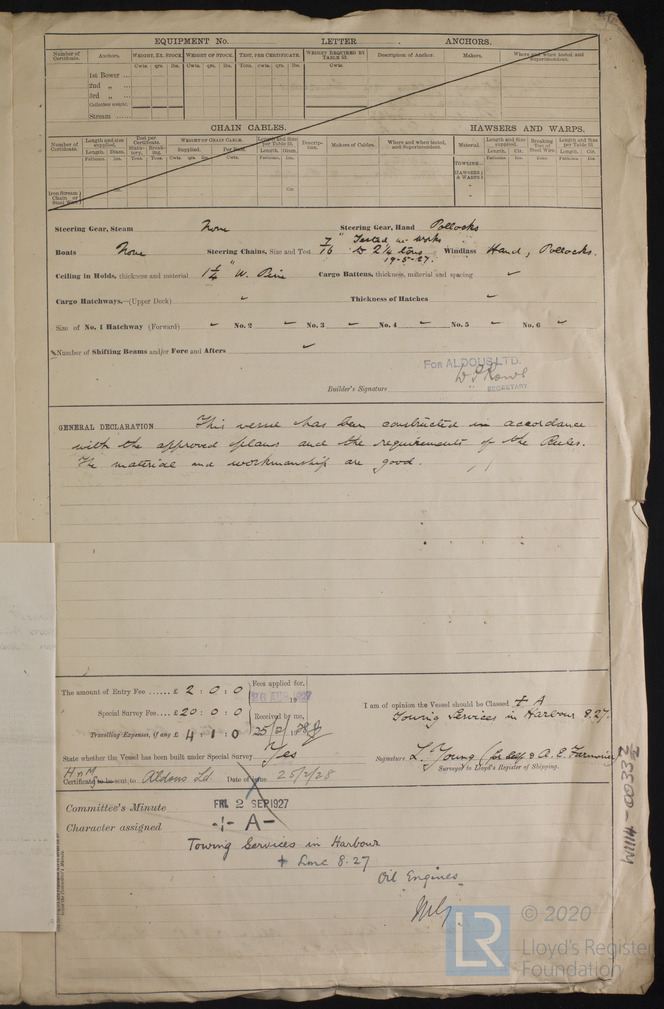 EQUIPMENT No. LETTER ANCHORS.
Number of Certificate. Anchors. WEIGHT, EX. STOCK. WEIGHT OF STOCK. TEST, PER CERTIFICATE. WEIGHT REQUIRED BY TABLE 53. Description of Anchor. Makers. Where and when tested and Superintendent.
Cwts. qrs. lbs. Cwts. qrs. lbs. Tons. cwts. qrs. lbs. Cwts.
1st Bower ...
2nd " ...
3rd " ...
Collective weight.
Stream ......
CHAIN CABLES. HAWSERS AND WARPS.
Number of Certificate. Length and size supplied. Test per Certificate. WEIGHT OF CHAIN CABLE. Length and Size per Table 53. Description. Makers of Cables. Where and when tested, and Superintendent. Material. Length and size supplied. Breaking Test of Steel Wire. Length and Size per Table 53.
Fathoms. Ins. Tons. Tons. Cwts. qrs. lbs. Cwts. Fathoms. Ins.
TOWLINE...
HAWSERS & WARPS
Iron Stream Chain or Steel Wire
Steering Gear, Steam None Steering Gear, Hand Pollocks
Boats None Steering Chains, Size and Test 7/16 " Tested at works to 2¼ tons 19-5-27. Windlass Hand, Pollocks.
Ceiling in Holds, thickness and material 1¼" W. Pine Cargo Battens, thickness, material and spacing ✓
Cargo Hatchways.—(Upper Deck) ✓ Thickness of Hatches ✓
Size of No. 1 Hatchway (Forward) ✓ No. 2 ✓ No. 3 ✓ No. 4 ✓ No. 5 ✓ No. 6 ✓
Number of Shifting Beams and/or Fore and Afters ✓
FOR ALDOUS LTD.
SECRETARY
Builder's Signature
GENERAL DECLARATION This vessel has been constructed in accordance
with the approved plans and the requirements of the Rules.
The material and workmanship are good.
The amount of Entry Fee ...... £ 2 : 0 : 0 Fees applied for,
26 AUG 1927
Special Survey Fee .... £ 20 : 0 : 0 Received by me,
Travelling Expenses, if any £ 4 : 1 : 0 25/2/28
I am of opinion the Vessel should be Classed + A
Towing Services in Harbour 8.27.
State whether the Vessel has been built under Special Survey Yes
Signature L. Young (for self & A. E. Farmoise)
Surveyor to Lloyd's Register of Shipping.
Certificate to be sent to Aldous Ld. Date of issue 25/2/28
Committee's Minute FRI. 2 SEP 1927
Character assigned -:- A-
Towing Services in Harbour
+ LMC 8.27
Oil Engines
W1114-0033 2/2
LR
© 2020
Lloyd's Register
Foundation